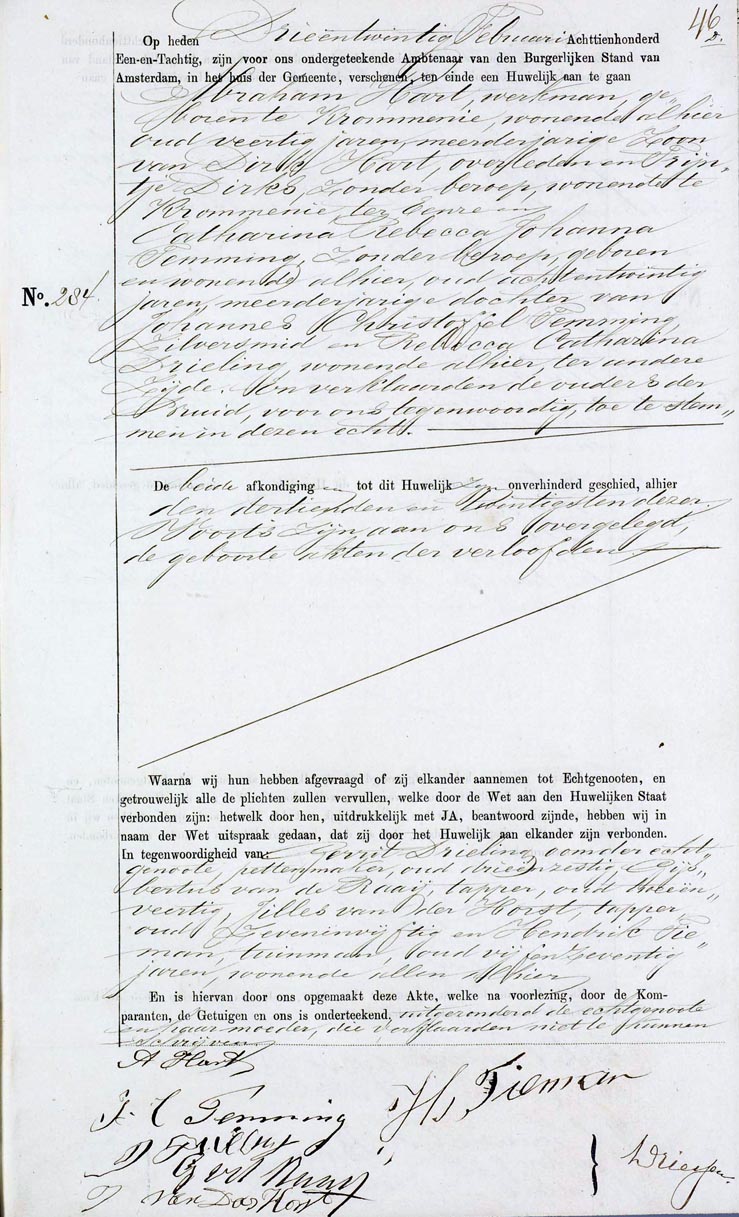 46
Op heden Drieëntwintig Februari Achttienhonderd
Een-en-Tachtig, zijn voor ons ondergeteekende Ambtenaar van den Burgerlijken Stand van
Amsterdam, in het huis der Gemeente, verschenen, ten einde een Huwelijk aan te gaan
Abraham Hart, werkman, ge„
boren te Krommenie, wonende alhier
oud veertig jaren, meerderjarige Zoon
van Dirk Hart, overleden en Trijn„
tje Dirks, zonder beroep, wonende te
Krommenie, ter Eenre en
Catharina Rebecca Johanna
Temming, zonder beroep, geboren
en wonende alhier, oud achtentwintig
No. 284.
jaren, meerderjarige dochter van
Johannes Christoffel Temming,
Zilversmid en Rebecca Catharina
Drieling, wonende alhier, ter andere
Zijde. En verklaarden de ouders der
Bruid, voor ons tegenwoordig, toe te stem„
men in dezen echt.
De beide afkondigingen tot dit Huwelijk zijn onverhinderd geschied, alhier
den dertienden en twintigsten dezer.
Voorts zijn aan ons overgelegd,
de geboorte akten der verloofden.
Waarna wij hun hebben afgevraagd of zij elkander aannemen tot Echtgenooten, en
getrouwelijk alle de plichten zullen vervullen, welke door de Wet aan den Huwelijken Staat
verbonden zijn: hetwelk door hen, uitdrukkelijk met JA, beantwoord zijnde, hebben wij in
naam der Wet uitspraak gedaan, dat zij door het Huwelijk aan elkander zijn verbonden.
In tegenwoordigheid van: Gerrit Drieling, oom der echt„
genoote, pettenmaker, oud drieënzestig, Gijs„
bertus van de Raaij, tapper, oud tweeën„
veertig, Jilles van der Horst, tapper,
oud Zevenenvijftig en Hendrik Tie„
man, tuinman, oud vijfenzeventig
jaren, wonende allen alhier
En is hiervan door ons opgemaakt deze Akte, welke na voorlezing, door de Kom-
paranten, de Getuigen en ons is onderteekend, uitgezonderd de echtgenoote
en haar moeder, die verklaarden niet te kunnen
schrijven.
A Hart
J. C Temming
H Tieman
G vd Raaij
J van Der Horst